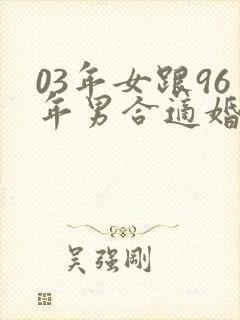 03年女跟96
年男合适婚
吴强刚